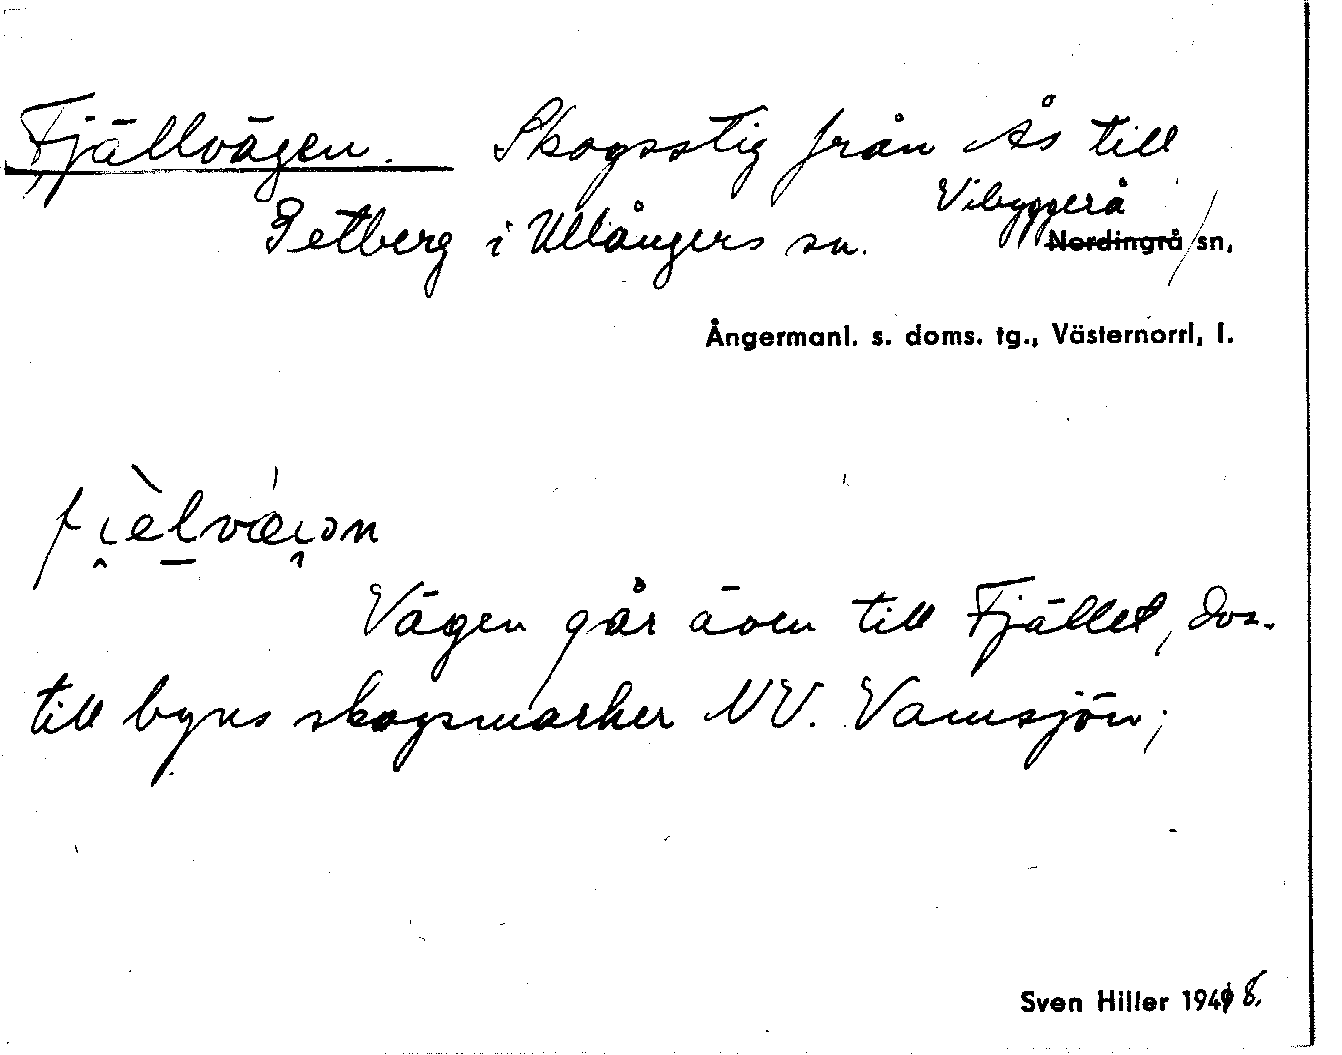 Fjällvägen. Skogsstig från Ås till
Vibyggerå
Getberg i Ullångers sn. Nordingrå sn,
Ångermanl. s. doms. tg., Västernorrl. l.
Vägen går även till Fjället, dvs.
till byns skogsmarker NV. Vamsjön;
Sven Hiller 1948.